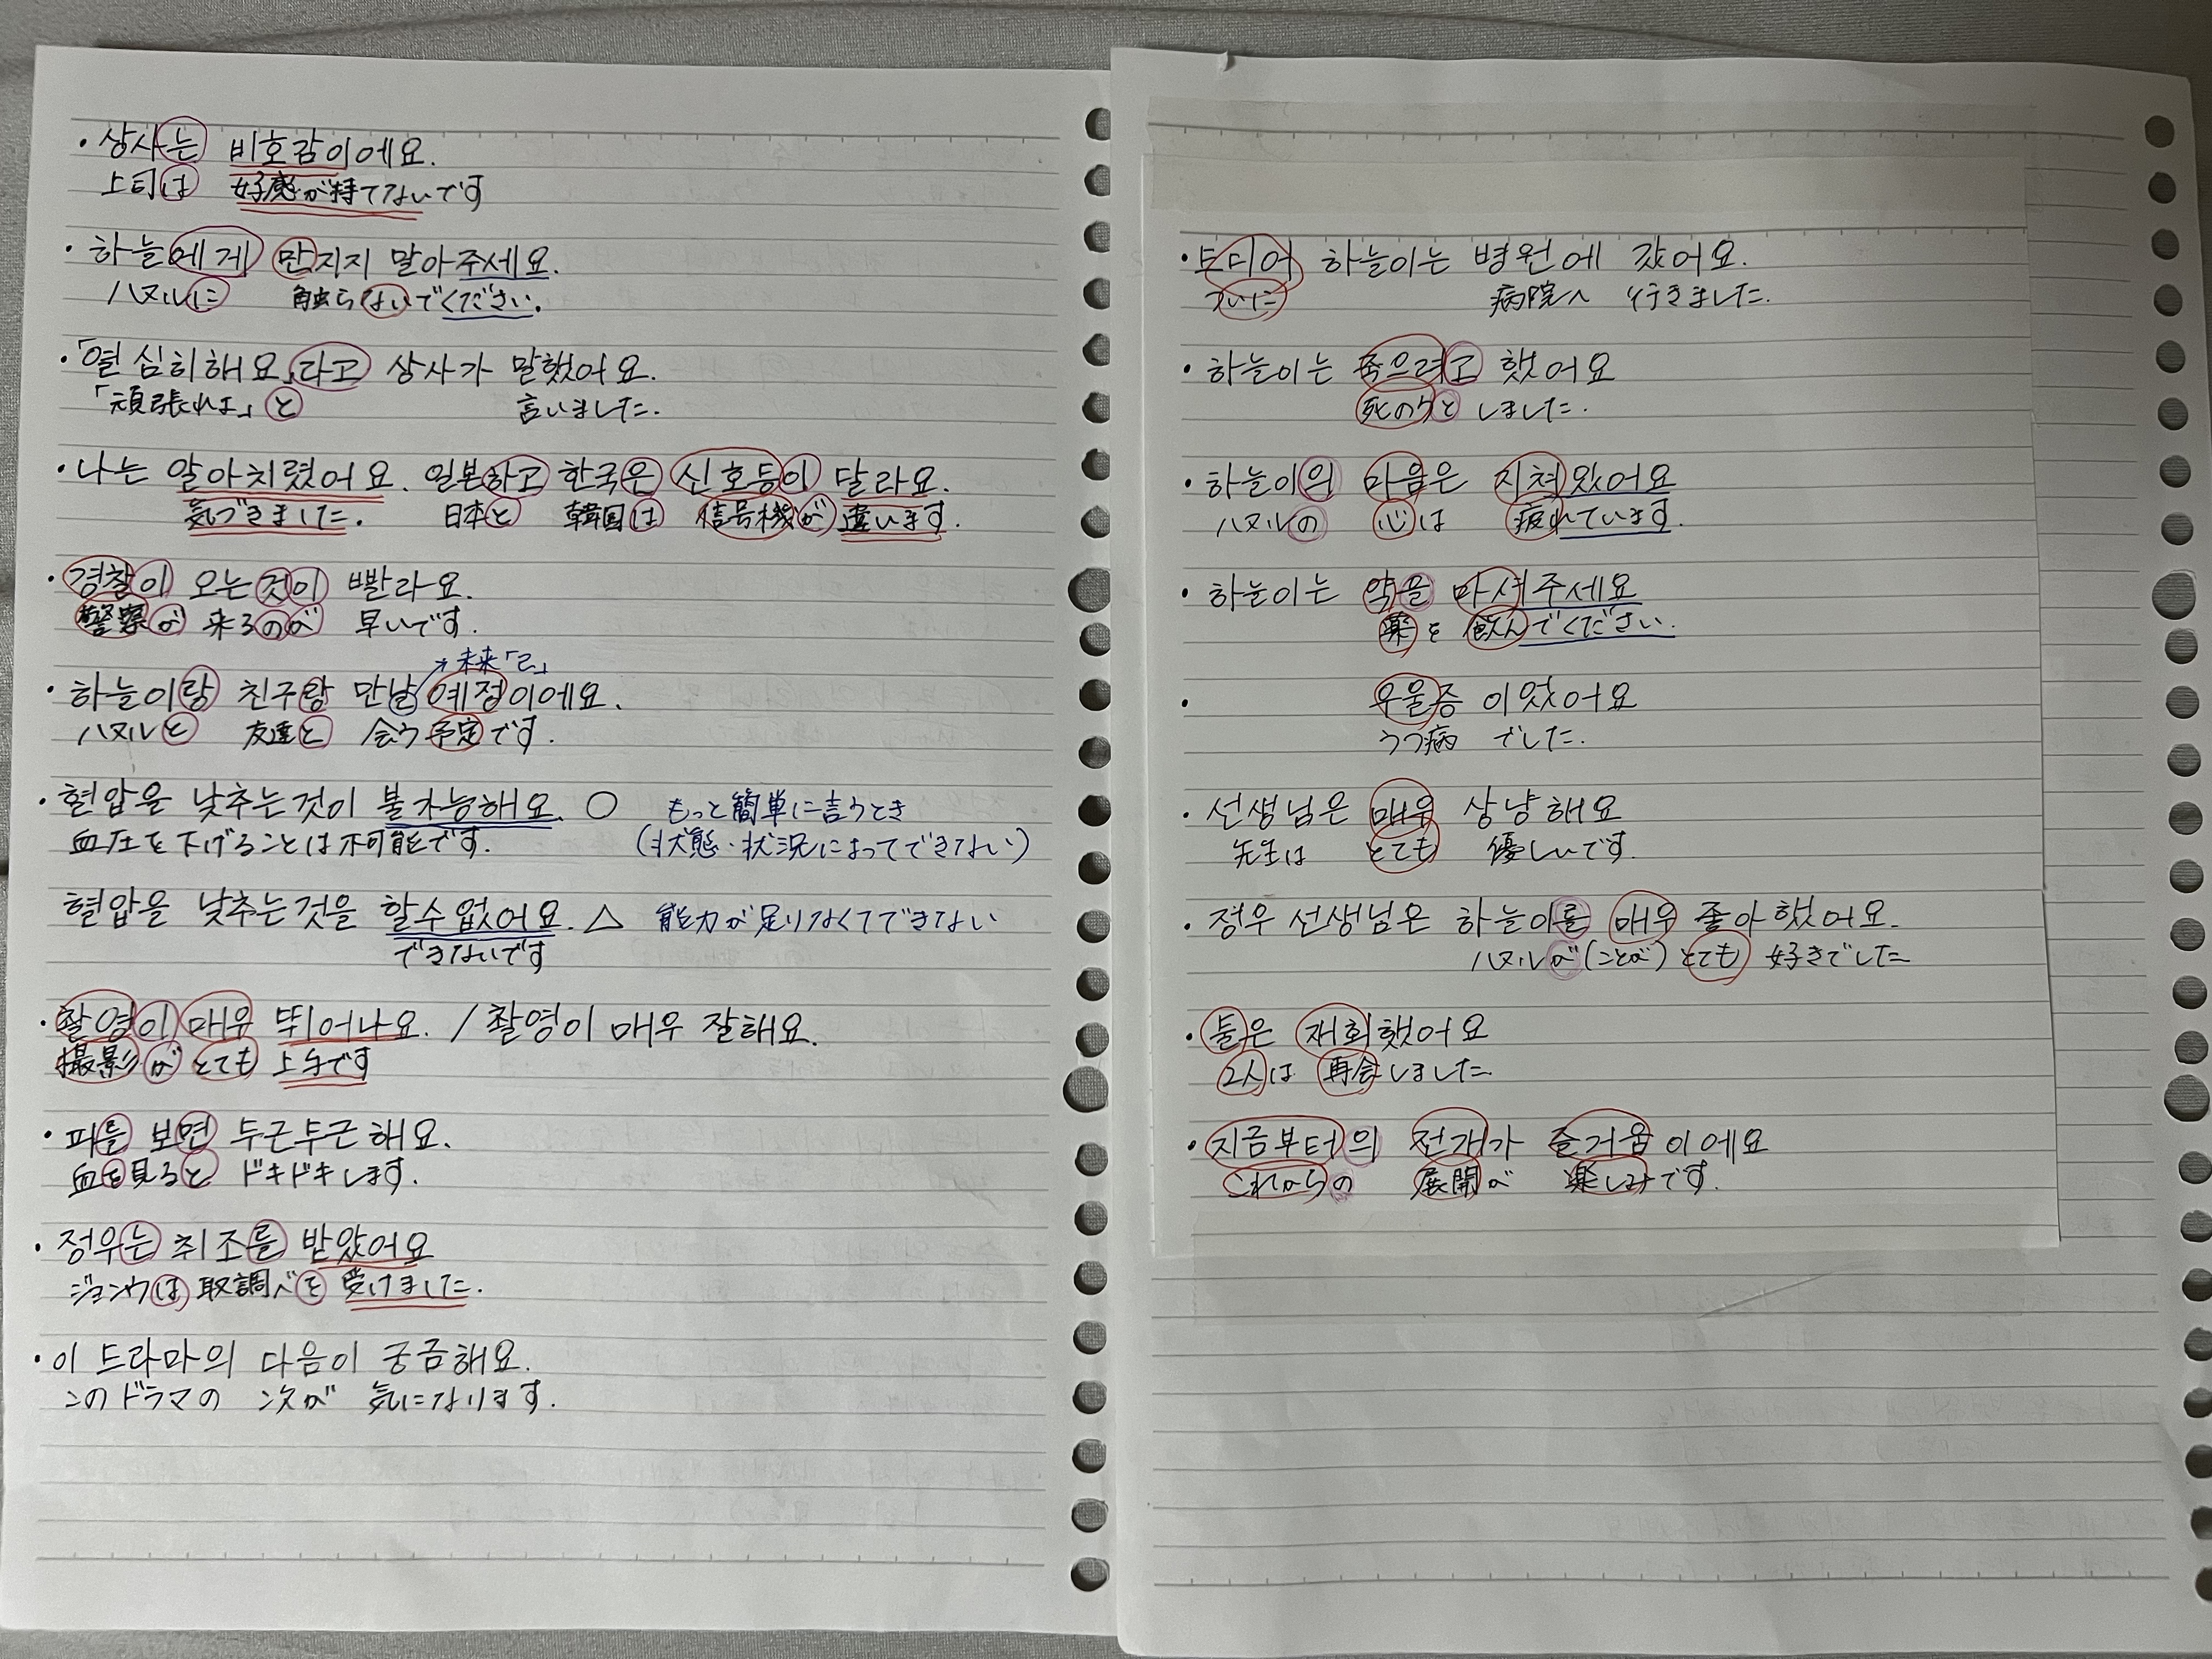 ・상사는 비호감이에요.
上司は 好感が持てないです
・하늘에게 만지지 말아주세요.
ハヌルに 触らないでください.
・「열심히해요」라고 상사가 말했어요.
「頑張れよ」と 言いました.
・나는 알아치렸어요. 일본하고 한국은 신호등이 달라요.
気づきました. 日本と 韓国は 信号機が 違います.
・경찰이 오는것이 빨라요.
警察が 来るのが 早いです.
→未来「ㄹ」
・하늘이랑 친구랑 만날 예정이에요.
ハヌルと 友達と 会う予定です.
・혈압을 낮추는것이 불가능해요. ○ もっと簡単に言うとき
血圧を下げることは不可能です. (状態・状況によってできない)
혈압을 낮추는것을 할수없었어요. △ 能力が足りなくてできない
できないです
・촬영이 매우 뛰어나요. / 촬영이 매우 잘해요.
撮影が とても 上手です
・피를 보면 두근두근해요.
血を見ると ドキドキします.
・정우는 취조를 받았어요
ジョンウは 取調べを 受けました.
・이 드라마의 다음이 궁금해요.
このドラマの 次が 気になります.
・드디어 하늘이는 병원에 갔어요.
ついに 病院へ 行きました.
・하늘이는 죽으려고 했어요
死のうと しました.
・하늘이의 마음은 지쳐있어요
ハヌルの 心は 疲れています.
・하늘이는 약을 마셔주세요
薬を 飲んでください.
・ 우울증 이었어요
うつ病 でした.
・선생님은 매우 상냥해요
先生は とても 優しいです.
・정우 선생님은 하늘이를 매우 좋아했어요.
ハヌルが(ことが)とても 好きでした
・둘은 재회했어요
2人は 再会しました
・지금부터의 전개가 즐거움이에요
これからの 展開が 楽しみです.